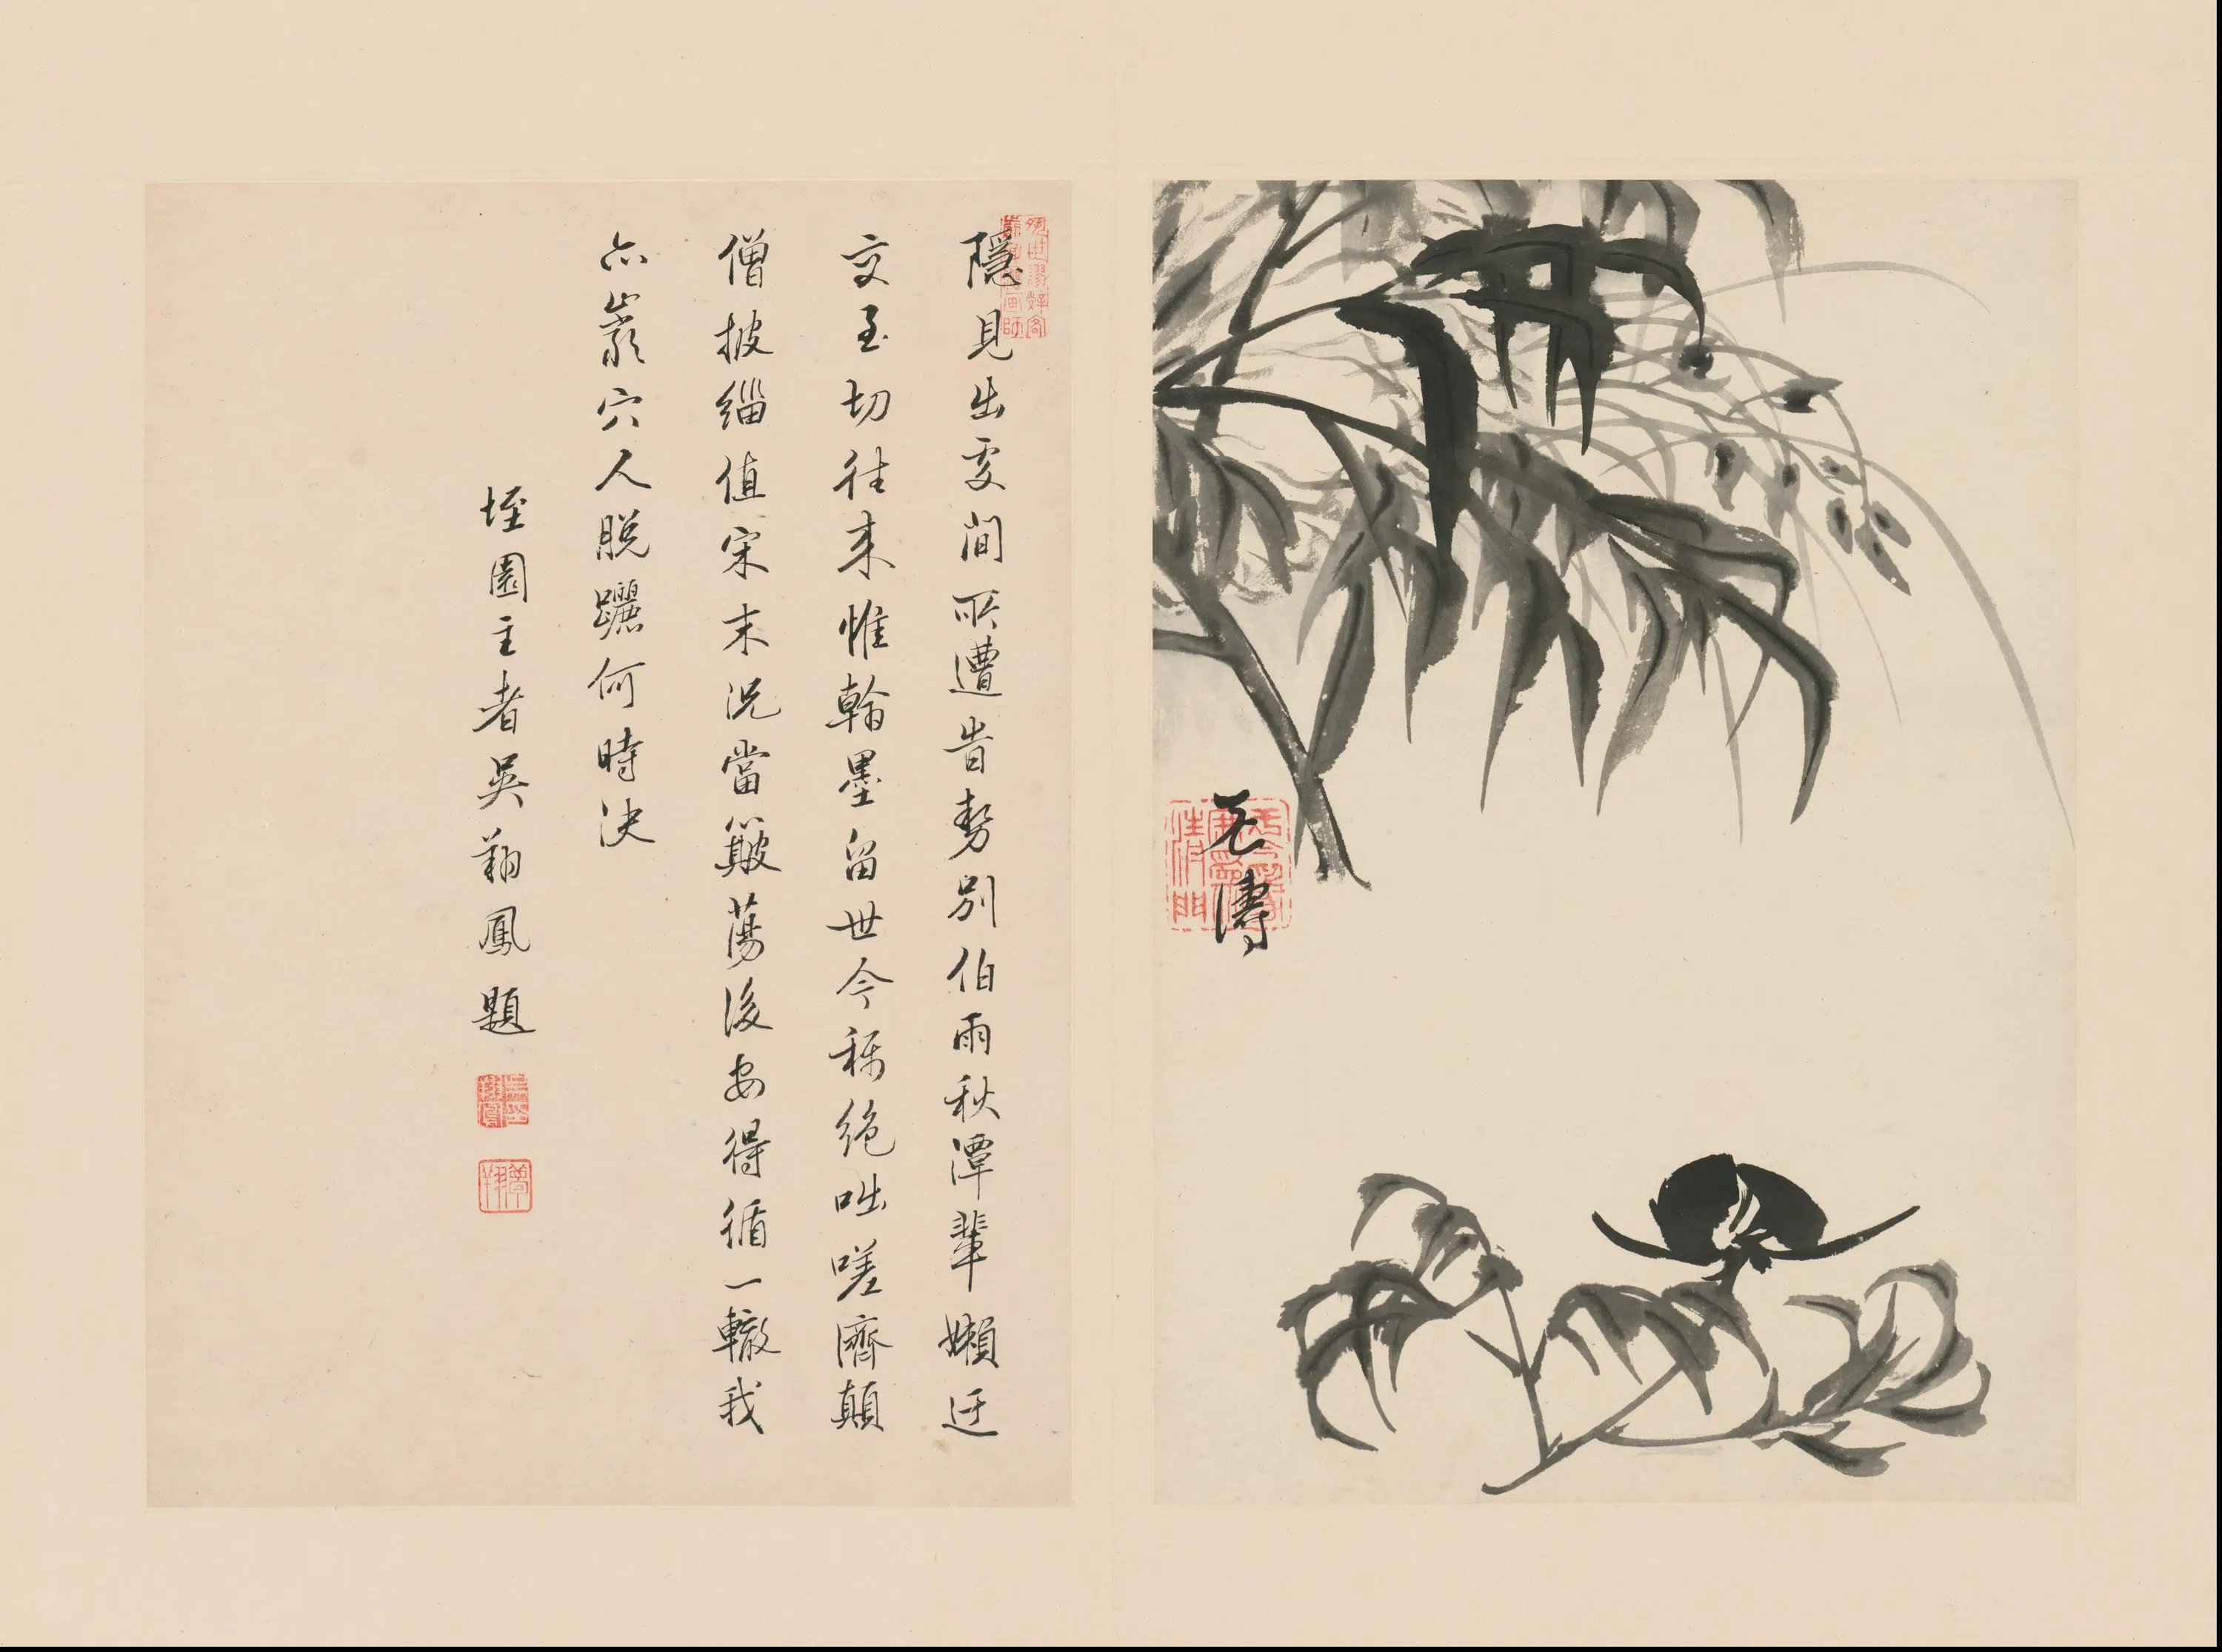 元濤
隱見出處間所遭昔勢別伯雨秋潭輩嬾迂
交至切往來惟翰墨留世今稱絕咄嗟濟顛
僧披緇值宋末況當簸蕩後安得循一轍我
亦巖穴人脫躧何時決
垤園主者吳翔鳳題